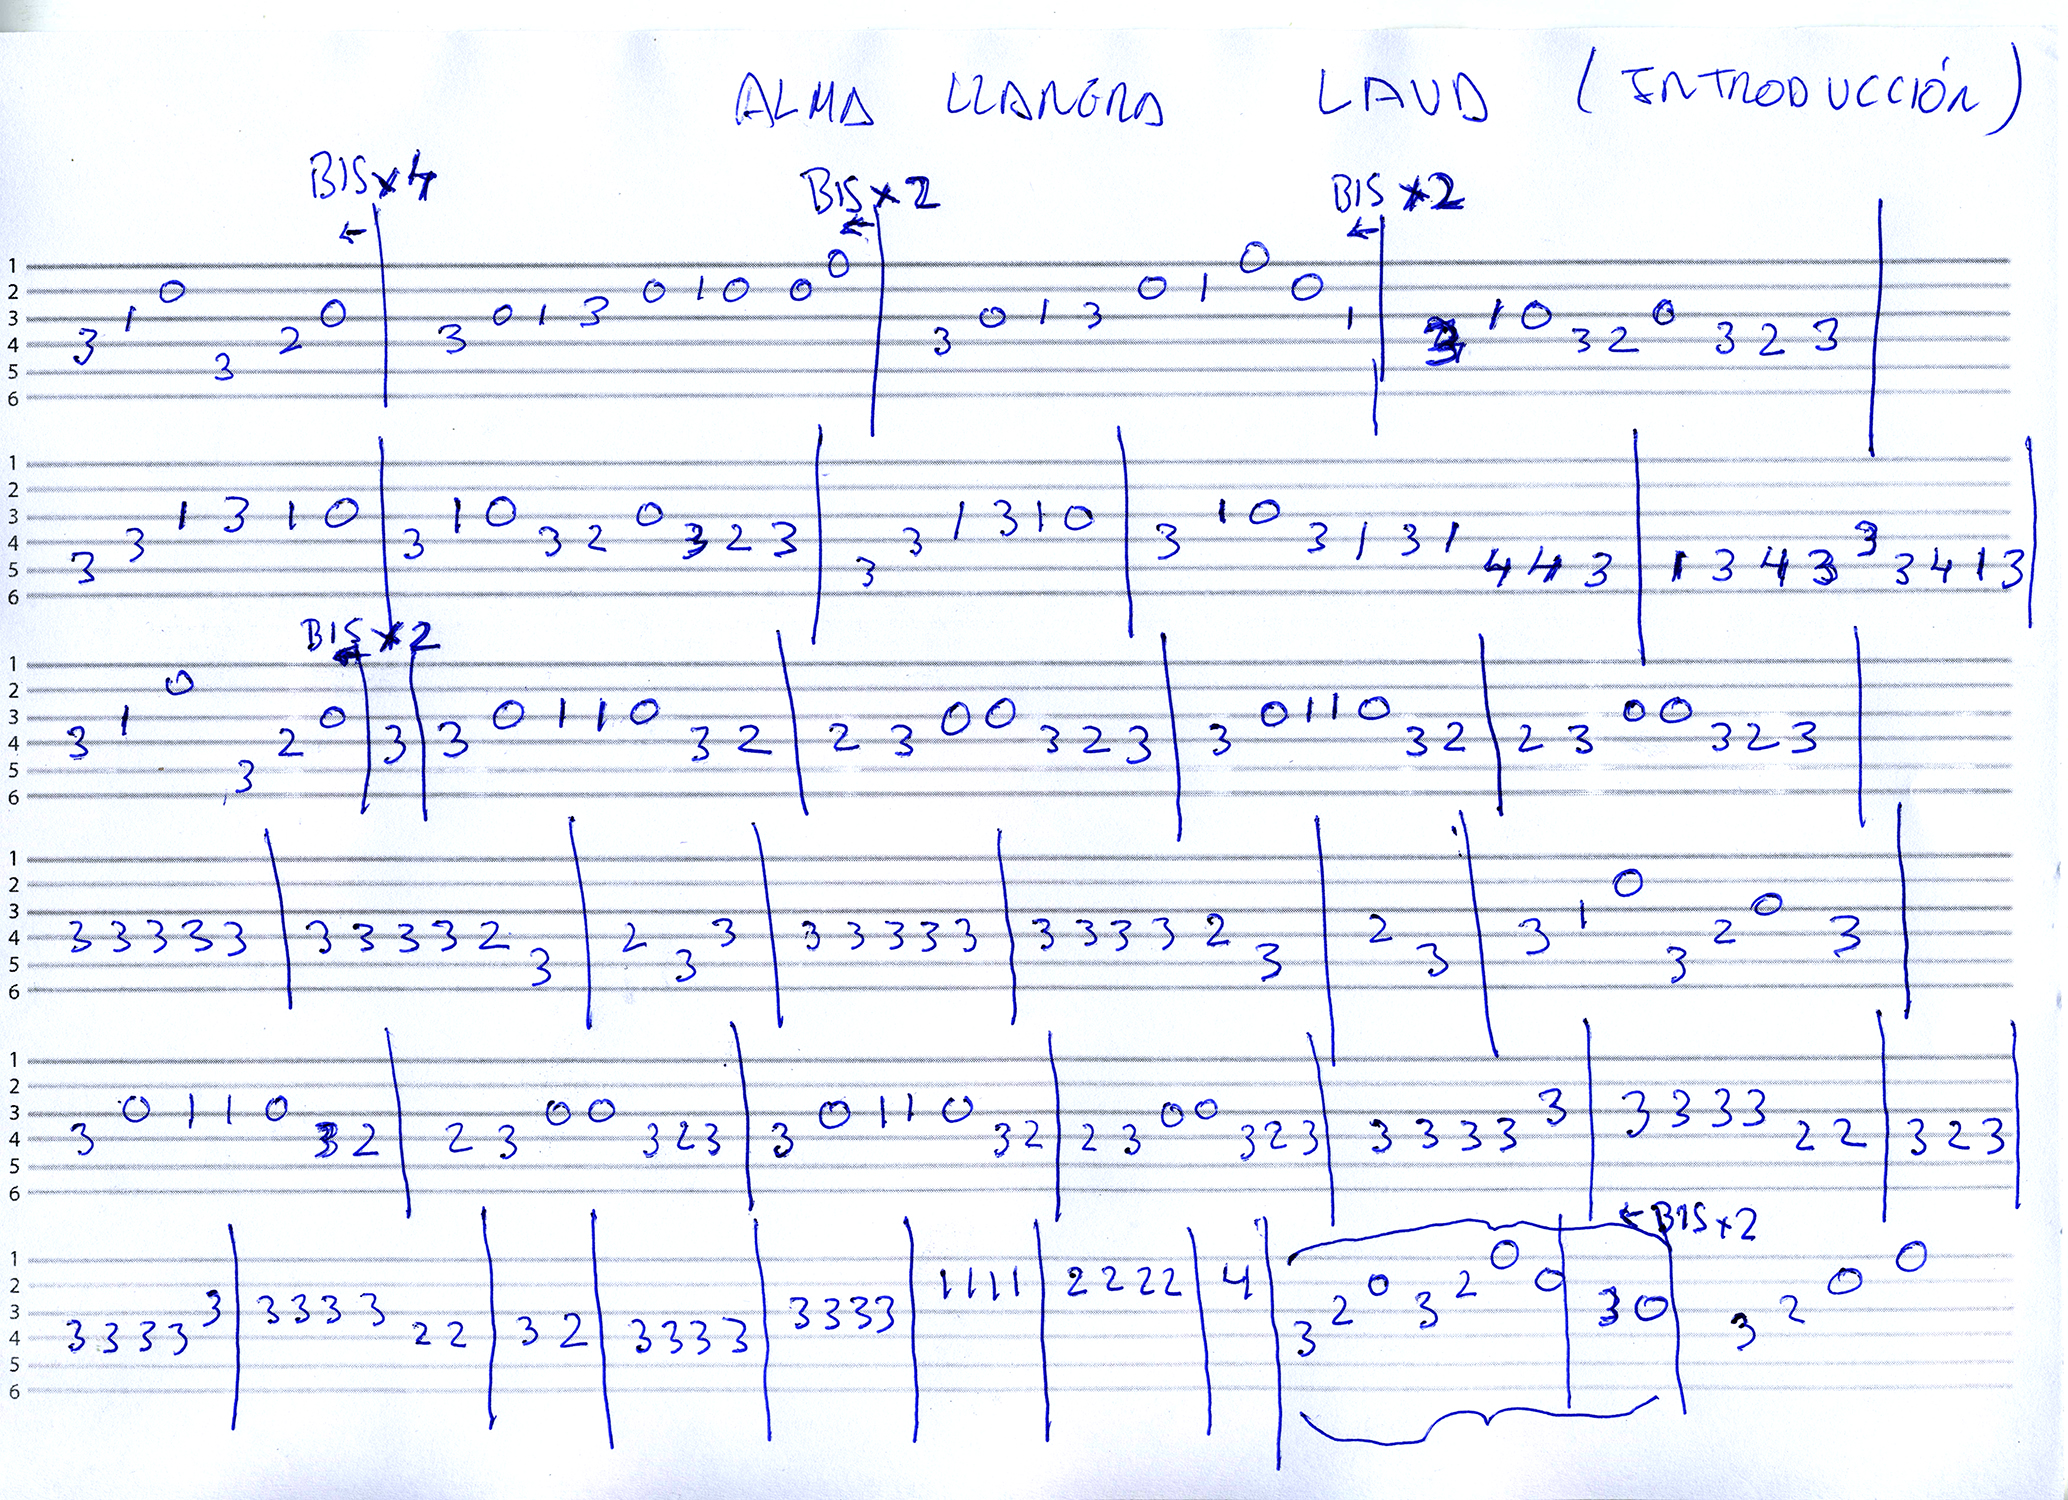 ALMA LLANERA LAUD (INTRODUCCIÓN)
BIS x 4 BIS x 2 BIS x 2
← ← ←
1
2
3
4
5
6
3 1 0 3 2 0 | 3 0 1 3 0 1 0 0 0 | 3 0 1 3 0 1 0 0 1 | 3 1 0 3 2 0 3 2 3 |
1
2
3
4
5
6
3 3 1 3 1 0 | 3 1 0 3 2 0 3 2 3 | 3 3 1 3 1 0 | 3 1 0 3 1 3 1 4 4 3 | 1 3 4 3 3 3 4 1 3 |
BIS x 2
←
1
2
3
4
5
6
3 1 0 3 2 0 | 3 | 3 0 1 1 0 3 2 | 2 3 0 0 3 2 3 | 3 0 1 1 0 3 2 | 2 3 0 0 3 2 3 |
1
2
3
4
5
6
3 3 3 3 3 | 3 3 3 3 2 3 | 2 3 3 | 3 3 3 3 3 | 3 3 3 3 2 3 | 2 3 | 3 1 0 3 2 0 3 |
1
2
3
4
5
6
3 0 1 1 0 3 2 | 2 3 0 0 3 2 3 | 3 0 1 1 0 3 2 | 2 3 0 0 3 2 3 | 3 3 3 3 3 | 3 3 3 3 2 2 | 3 2 3 |
← BIS x 2
1
2
3
4
5
6
3 3 3 3 3 | 3 3 3 3 2 2 | 3 2 | 3 3 3 3 | 3 3 3 3 | 1 1 1 1 | 2 2 2 2 | 4 | 3 2 0 3 2 0 0 | 3 0 | 3 2 0 0